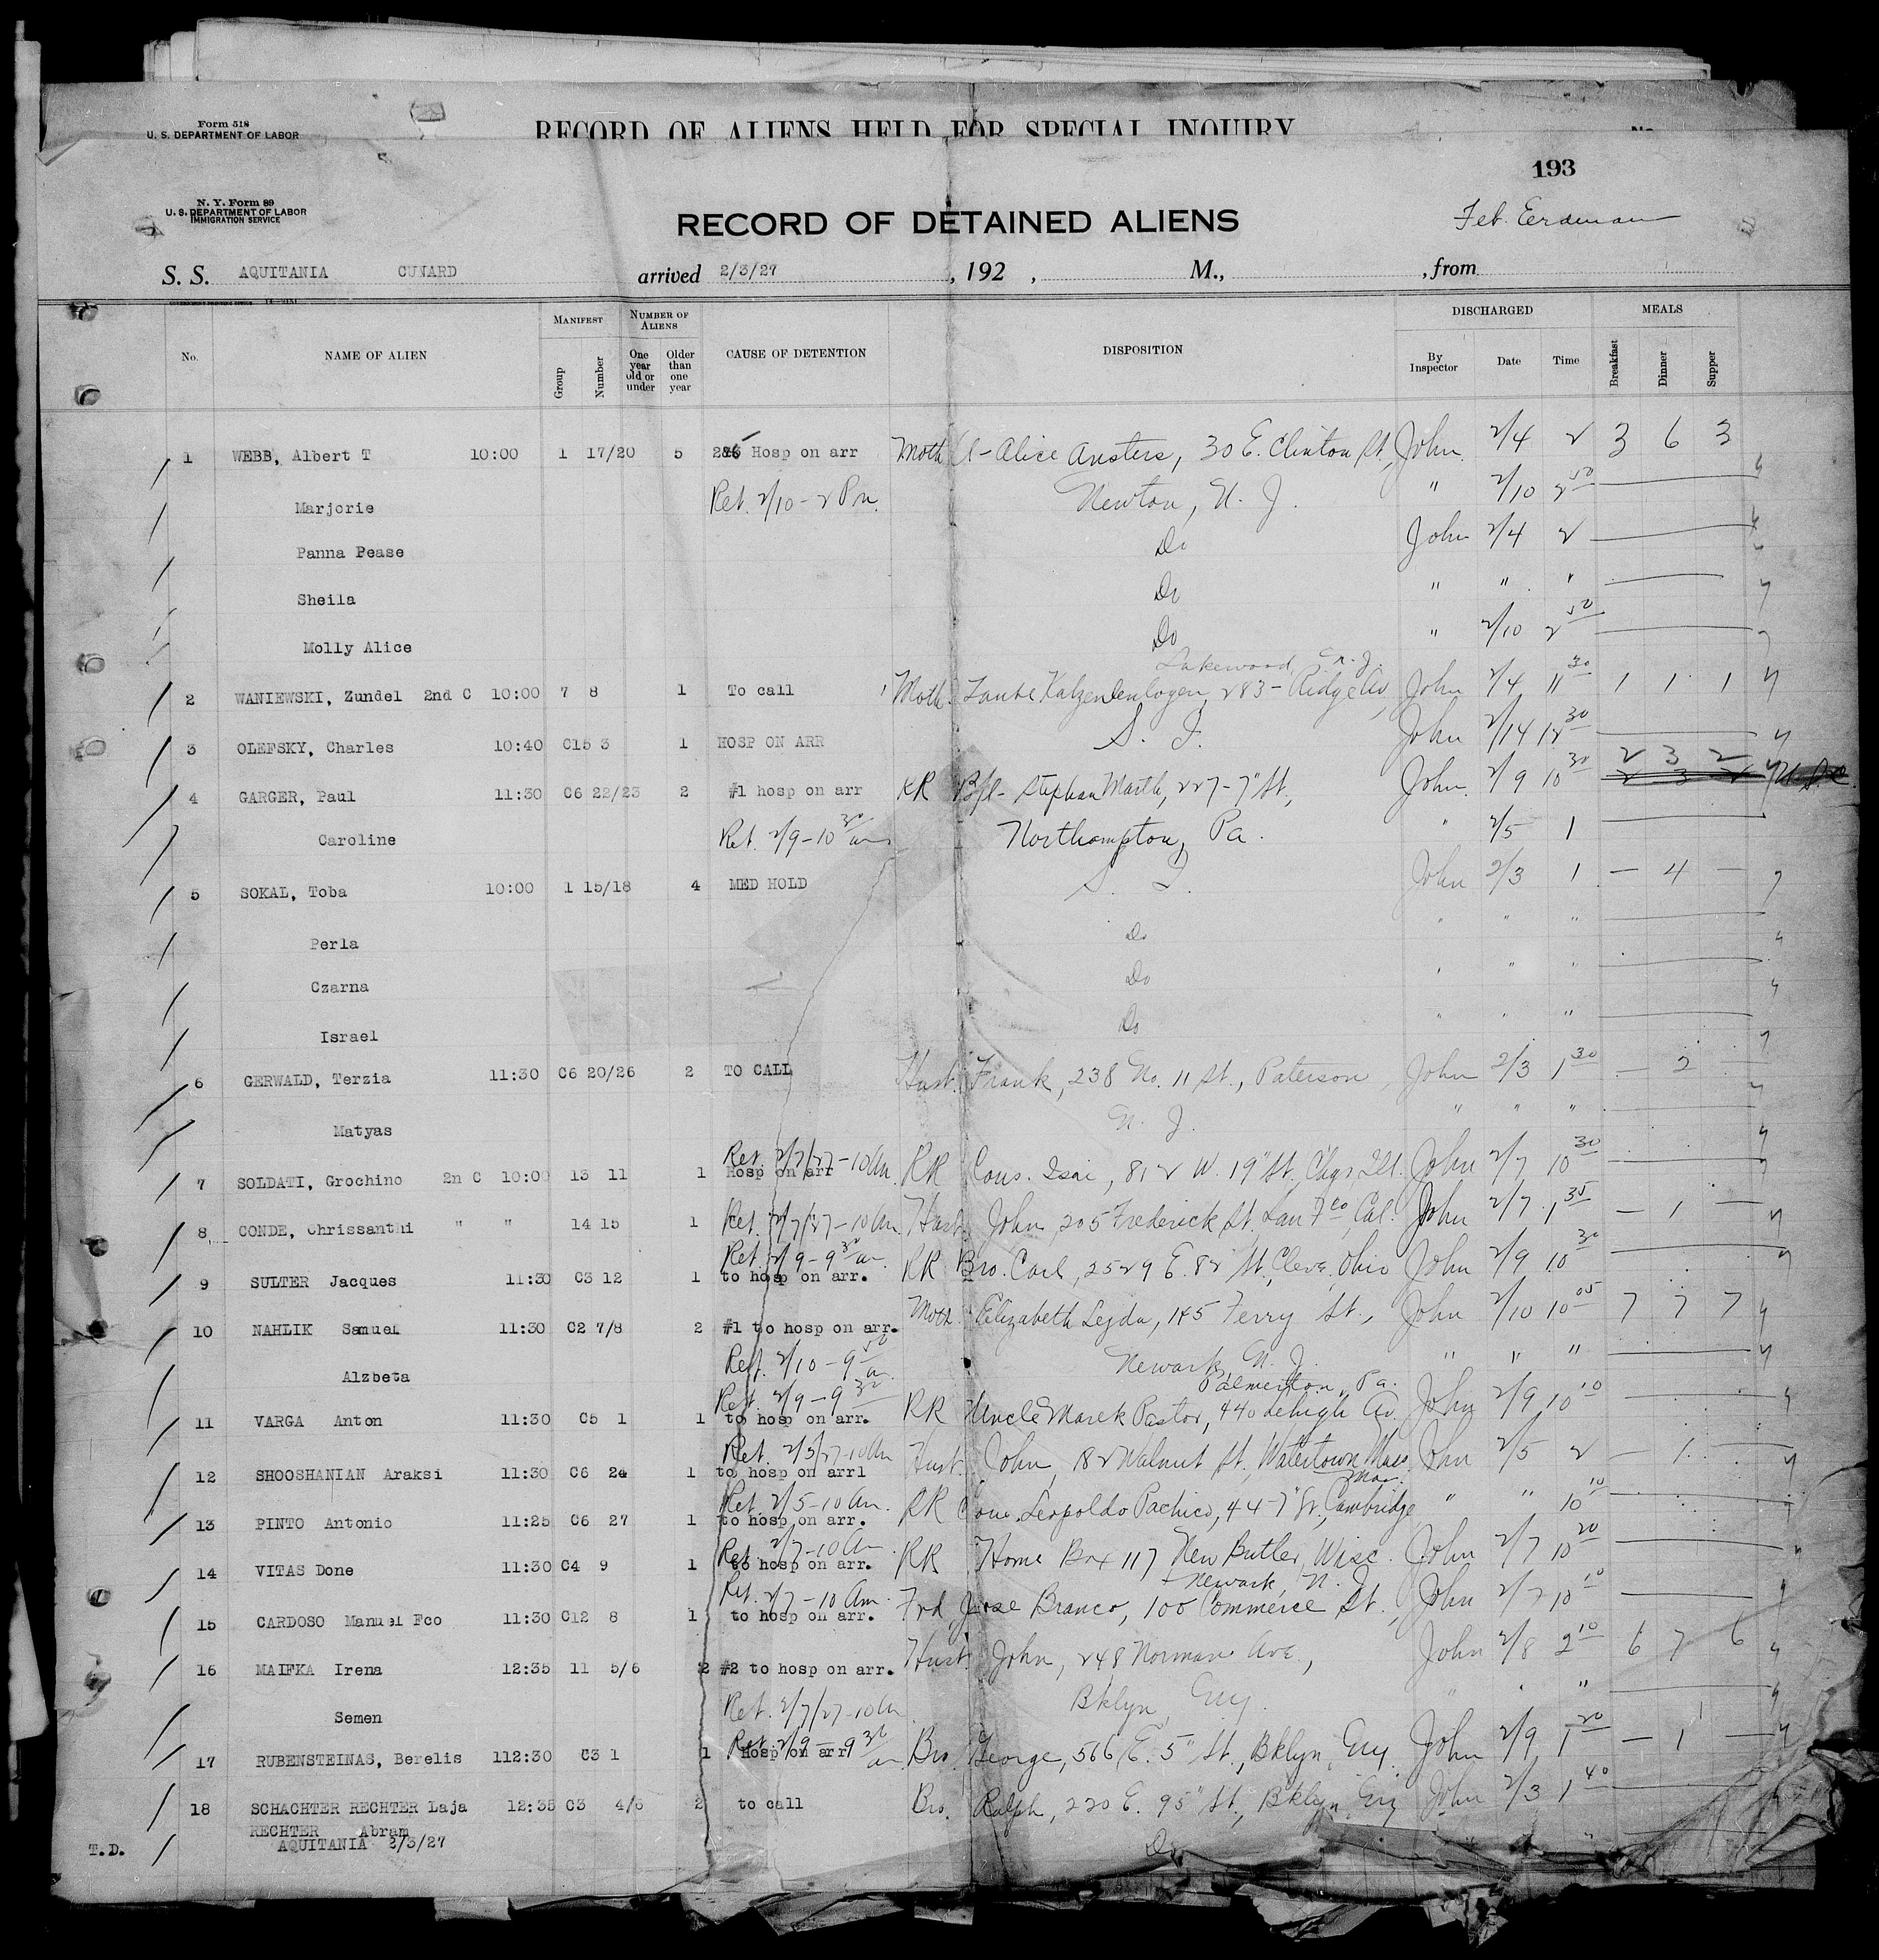 Form 518
U. S. DEPARTMENT OF LABOR
RECORD OF ALIENS HELD FOR SPECIAL INQUIRY
No.
193
N. Y. Form 89
U. S. DEPARTMENT OF LABOR
IMMIGRATION SERVICE
RECORD OF DETAINED ALIENS
S. S. AQUITANIA CUNARD arrived 2/3/27, 192 , M., , from
No. NAME OF ALIEN MANIFEST Group Number NUMBER OF ALIENS One year old or under Older than one year CAUSE OF DETENTION DISPOSITION DISCHARGED By Inspector Date Time MEALS Breakfast Dinner Supper
1 WEBB, Albert T 10:00 1 17/20 5 Hosp on arr Moth Alice 30 E. Clinton St., John 2/4 2 3 6 3
Marjorie Ret. 2/10 - 2 Pm. Newton, N. J. " 2/10 2 50
Panna Pease Do John 2/4 2
Sheila Do " " "
Molly Alice Do " 2/10 2 50
Lakewood, N. J.
2 WANIEWSKI, Zundel 2nd C 10:00 7 8 1 To call Moth. 283 - Ridge Av, John 2/4 11 30 1 1 1
3 OLEFSKY, Charles 10:40 C15 3 1 HOSP ON ARR S. I. John 2/14 30
4 GARGER, Paul 11:30 C6 22/23 2 #1 hosp on arr RR Stephan 227 - 7" St., John 2/9 10 30 2 3 2
Caroline Ret. 2/9 - 10 30 am Northampton, Pa. " 2/5 1
5 SOKAL, Toba 10:00 1 15/18 4 MED HOLD S. I. John 2/3 1 - 4 -
Perla Do " " "
Czarna Do " " "
Israel Do " " "
6 GERWALD, Terzia 11:30 C6 20/26 2 TO CALL Husb. Frank, 238 No. 11 St., Paterson John 2/3 1 30 - 2 -
Matyas N. J. " " "
Ret. 2/7/27 - 10 Am
7 SOLDATI, Grochino 2n C 10:00 13 11 1 Hosp on arr RR Cous. Isai, 812 W. 19" St. Chgo, Ill. John 2/7 10 30
8 CONDE, Chrissanthi " " 14 15 1 Ret. 2/7/27 - 10 Am Husb. John, 205 Frederick St. San Fco, Cal. John 2/7 1 35 - 1 -
Ret. 2/9 - 9 30 am
9 SULTER Jacques 11:30 C3 12 1 to hosp on arr. RR Bro. Carl, 2529 E. 82" St., Cleve. Ohio John 2/9 10 30
10 NAHLIK Samuel 11:30 C2 7/8 2 #1 to hosp on arr. Moth. Elizabeth Lejda, 145 Ferry St., John 2/10 10 05 7 7 7
Alzbeta Ret. 2/10 - 9 50 am. Newark, N. J. " " "
Ret. 2/9 - 9 30 Palmerton, Pa.
11 VARGA Anton 11:30 C5 1 1 to hosp on arr. RR Uncle Marek Pastor, 440 Lehigh Av. John 2/9 10 10
Ret. 2/5/27 - 10 Am
12 SHOOSHANIAN Araksi 11:30 C6 24 1 to hosp on arrl Husb. John, 182 Walnut St., Watertown Mass. John 2/5 2 - 1 -
Ret. 2/5 - 10 Am. Mass.
13 PINTO Antonio 11:25 C6 27 1 to hosp on arr. RR Cous. Leopoldo Pachico, 44 - 7" St., Cambridge " " 10 10
Ret. 2/7 - 10 Am
14 VITAS Done 11:30 C4 9 1 to hosp on arr. RR Home Box 117 New Butler, Wisc. John 2/7 10 20
Ret. 2/7 - 10 Am. Newark, N. J.
15 CARDOSO Manuel Fco 11:30 C12 8 1 to hosp on arr. Frd Jose Branco, 100 Commerce St., John 2/7 10 10
16 MAIFKA Irena 12:35 11 5/6 2 #2 to hosp on arr. Husb. John, 248 Norman Ave., John 2/8 2 10 6 7 6
Semen Ret. 2/7/27 - 10 Am Bklyn, "
Ret. 2/9 - 9 30 am
17 RUBENSTEINAS, Berelis 112:30 C3 1 1 Hosp on arr Bro. George, 566 E. 5" St., Bklyn, John 2/9 1 20 - 1 -
18 SCHACHTER RECHTER Laja 12:35 C3 4/5 2 to call Bro. Ralph, 220 E. 95" St., Bklyn John 2/3 1 40
RECHTER Abram Do
T.D. AQUITANIA 2/3/27